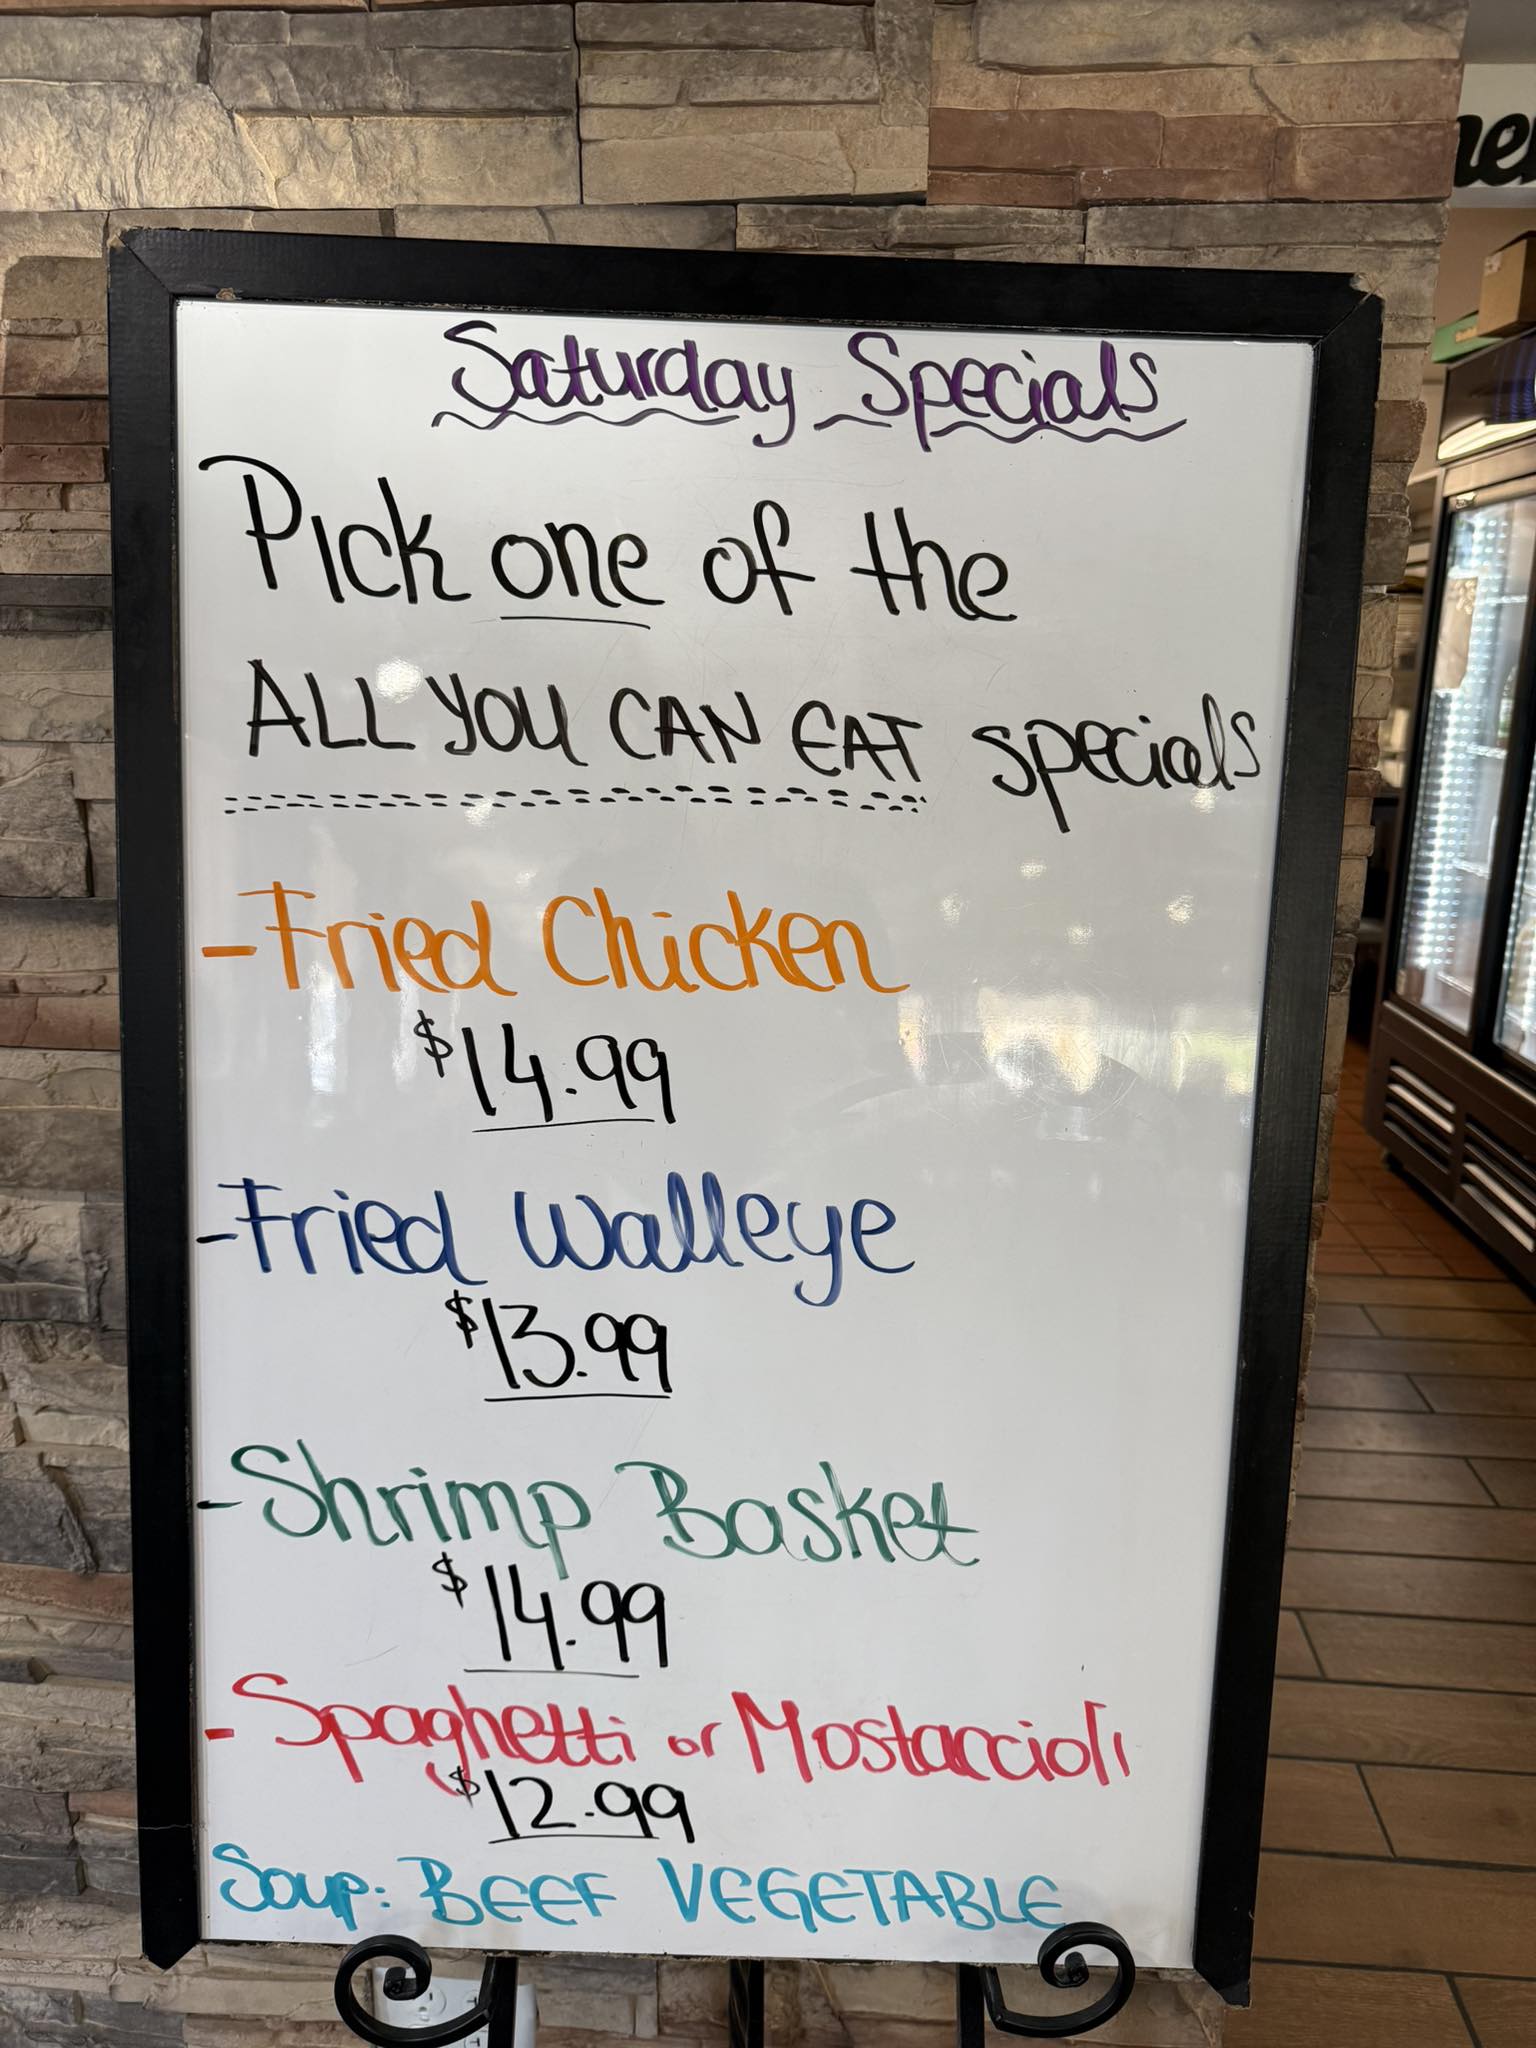 Saturday Specials
Pick one of the
ALL YOU CAN EAT specials
- Fried Chicken
$14.99
- Fried Walleye
$13.99
- Shrimp Basket
$14.99
- Spaghetti or Mostaccioli
$12.99
Soup: BEEF VEGETABLE